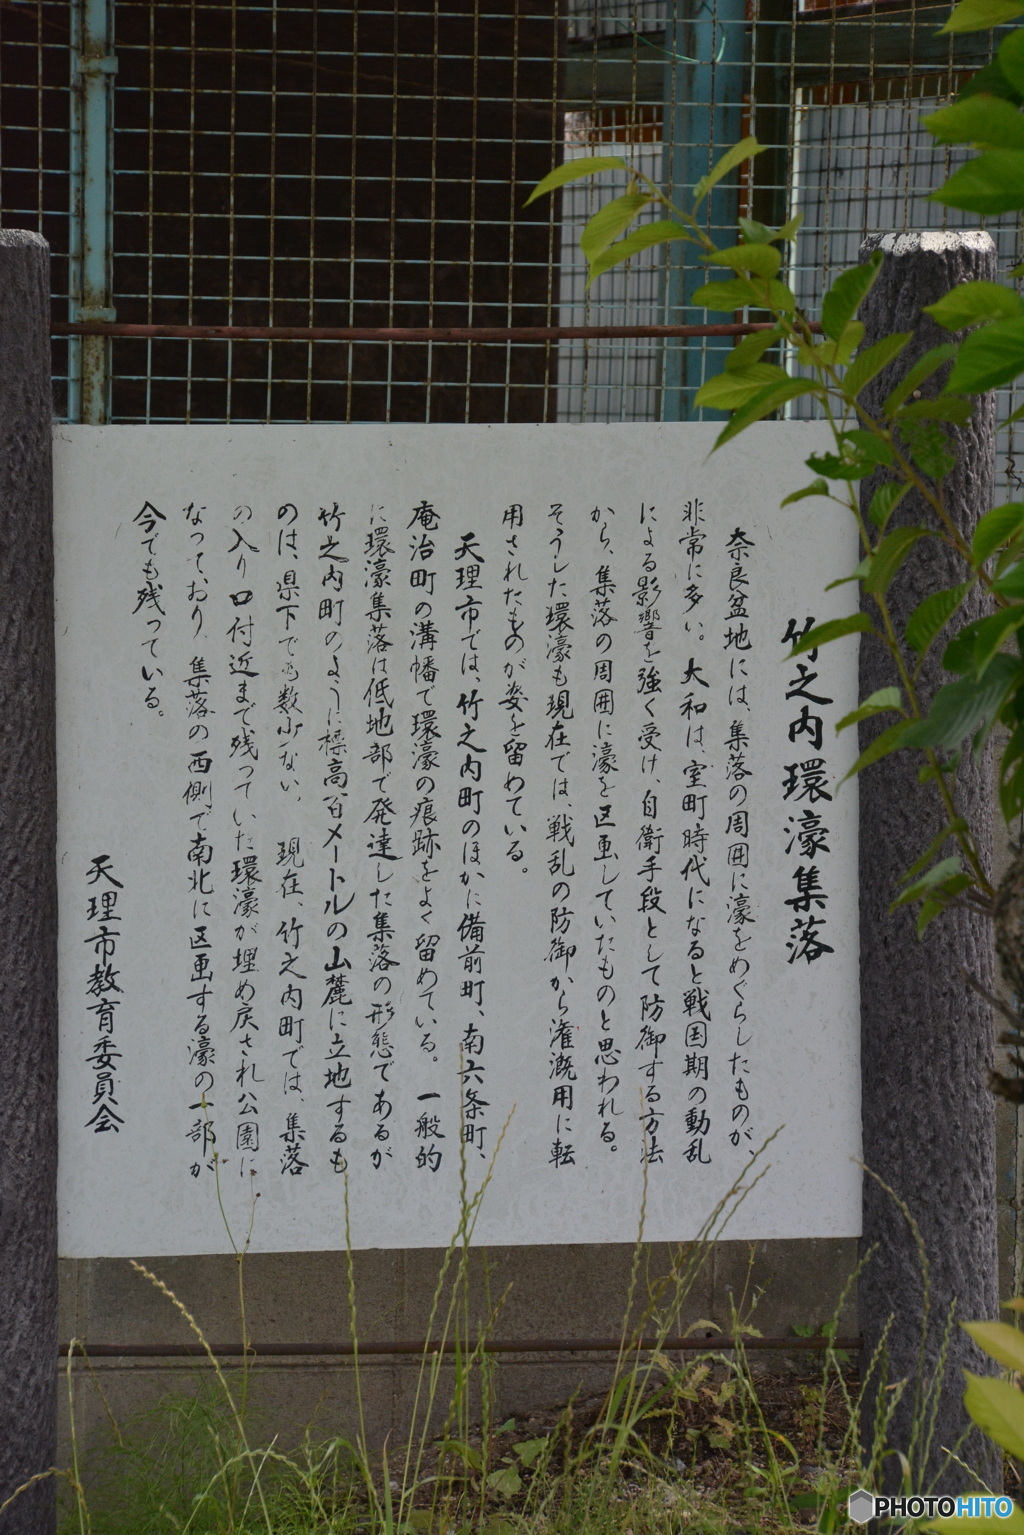 竹之内環濠集落
奈良盆地には、集落の周囲に濠をめぐらしたものが、
非常に多い。大和は、室町時代になると戦国期の動乱
による影響を強く受け、自衛手段として防御する方法
から、集落の周囲に濠を区画していたものと思われる。
そうした環濠も現在では、戦乱の防御から潅漑用に転
用されたものが姿を留めている。
天理市では、竹之内町のほかに備前町、南六条町、
庵治町の溝幡で環濠の痕跡をよく留めている。一般的
に環濠集落は低地部で発達した集落の形態であるが
竹之内町のように標高百メートルの山麓に立地するも
のは、県下でも数少ない。 現在、竹之内町では、集落
の入り口付近まで残っていた環濠が埋め戻され公園に
なっており、集落の西側で南北に区画する濠の一部が
今でも残っている。
天理市教育委員会
PHOTOHITO